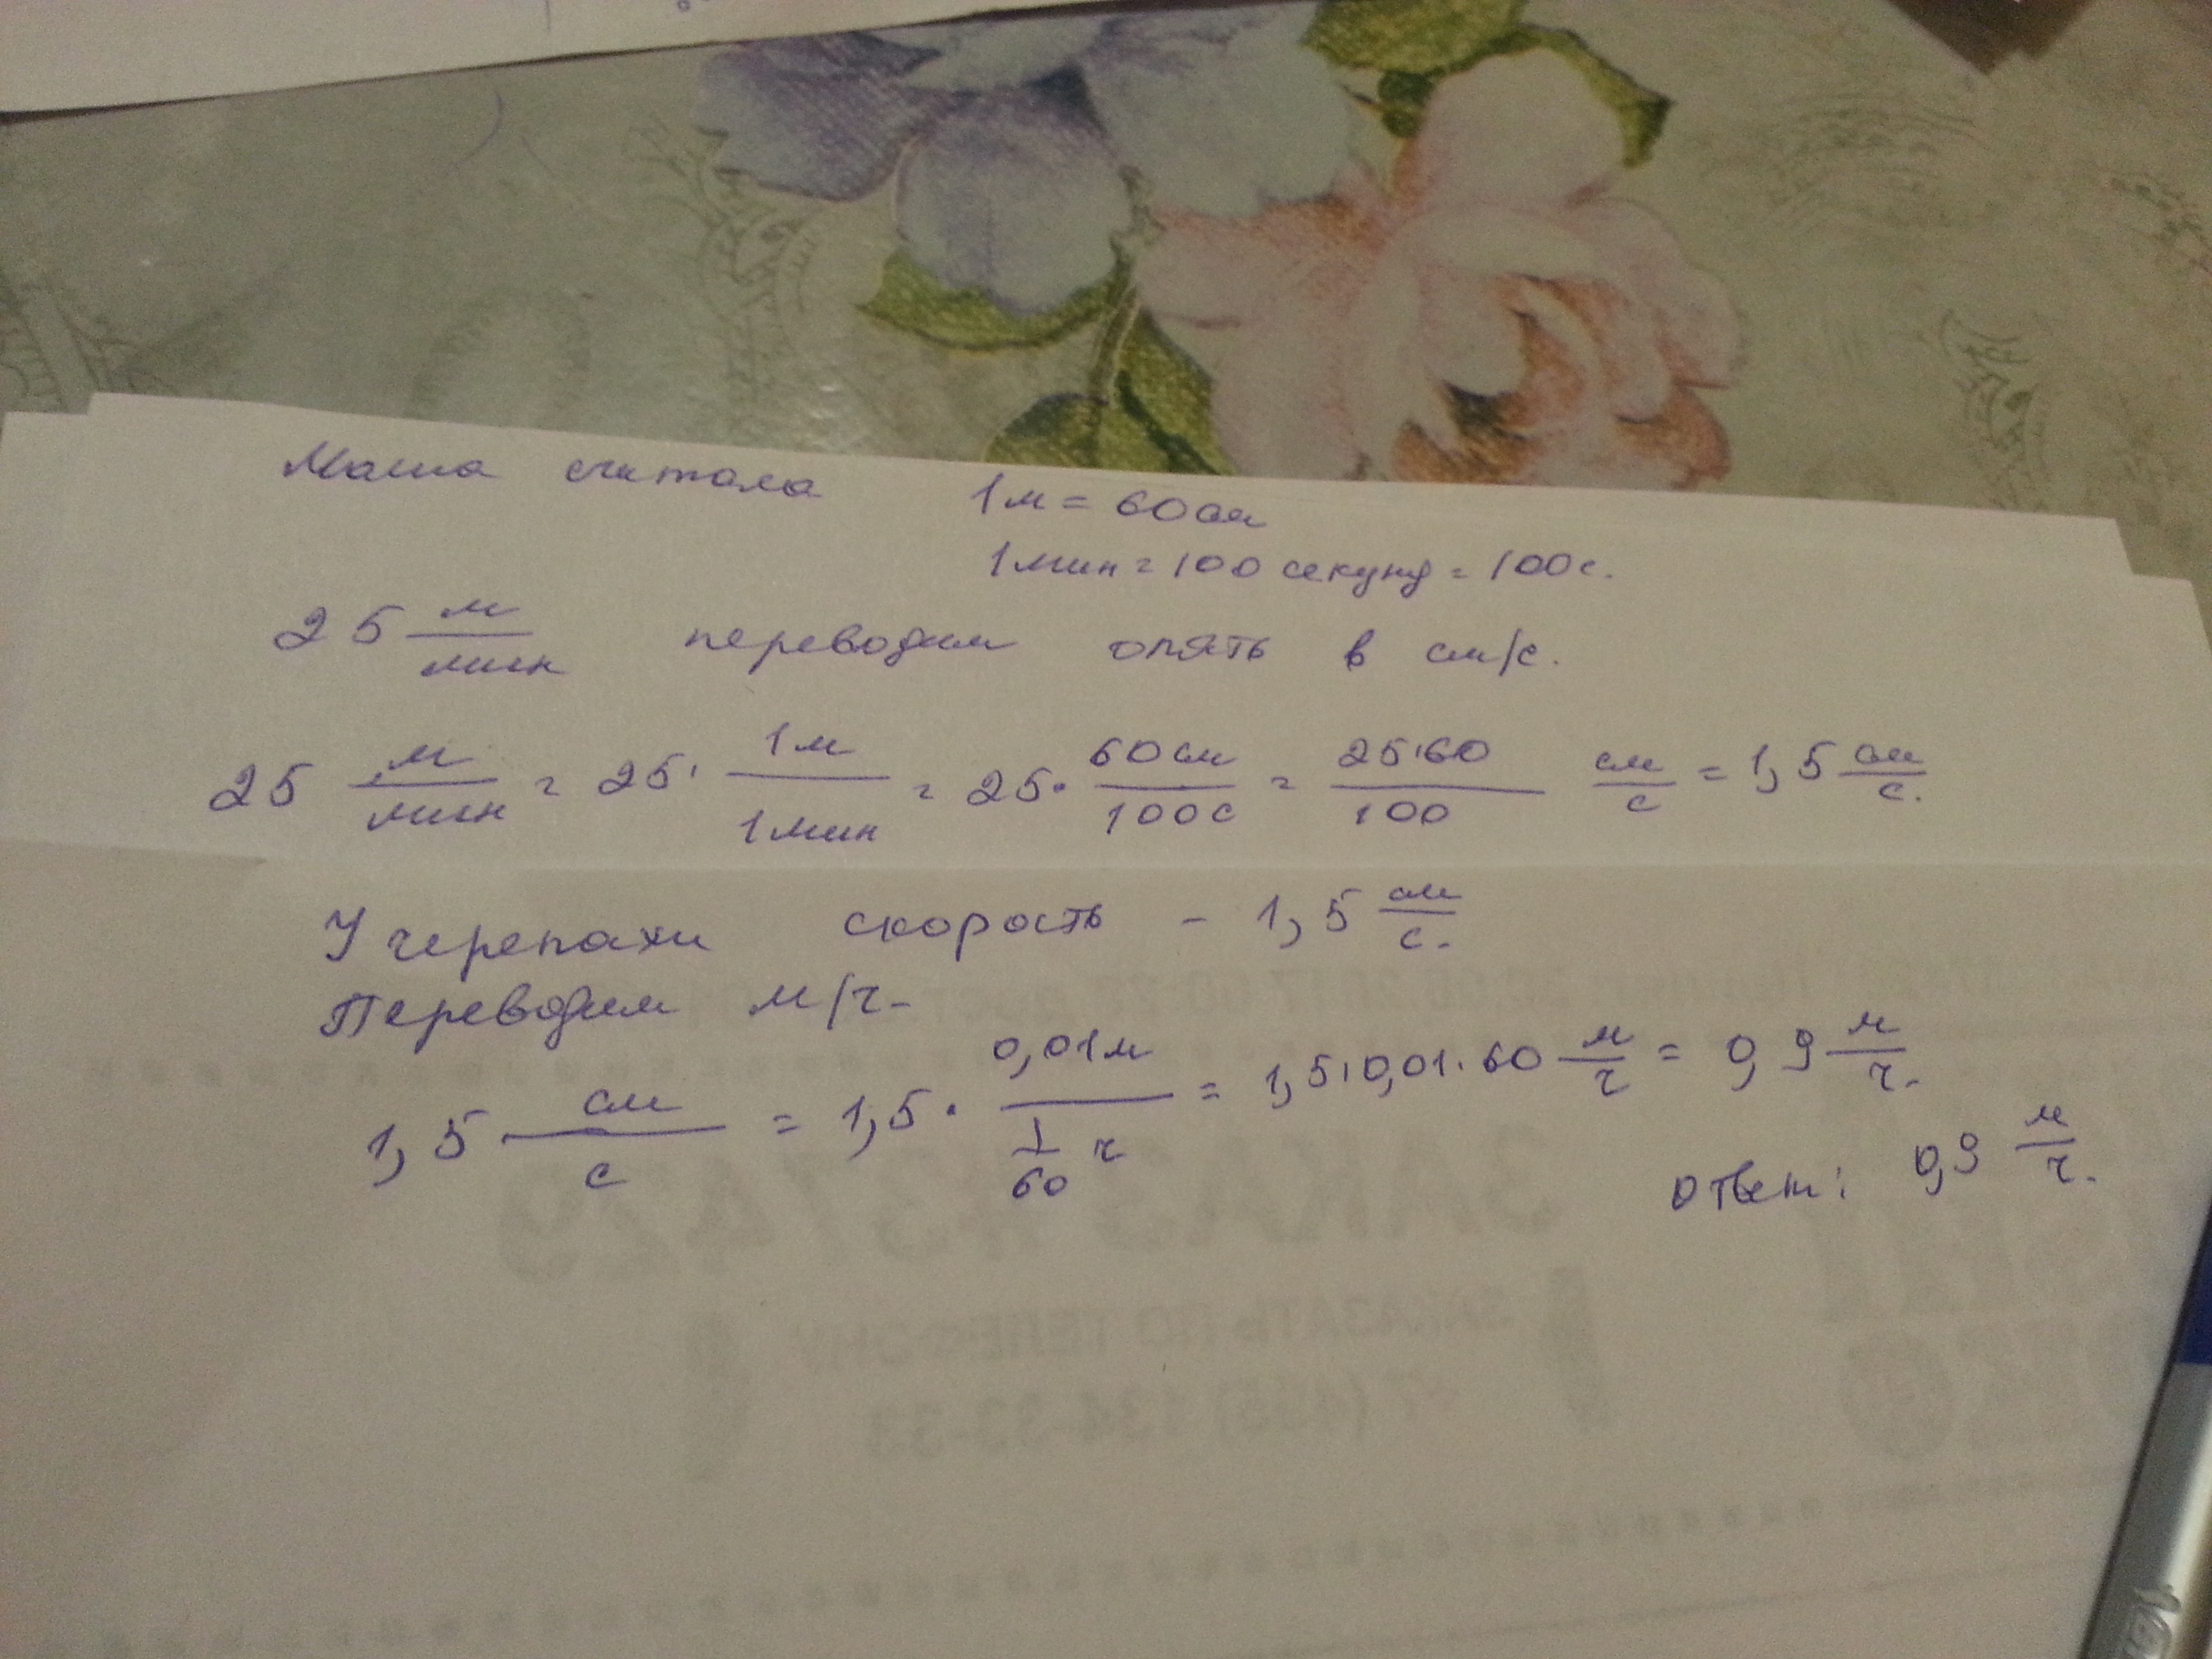 Маша считала 1м = 60см
1мин = 100 секунд = 100с.
25 м/мин переводим опять в см/с.
25 м/мин = 25 · 1м/1мин = 25 · 60см/100с = 25·60/100 см/с = 1,5 см/с.
У черепахи скорость - 1,5 см/с.
Переводим м/ч.
1,5 см/с = 1,5 · 0,01м/(1/60 ч) = 1,5·0,01·60 м/ч = 0,9 м/ч.
ответ: 0,9 м/ч.
ЗАКАЗАТЬ ПО ТЕЛЕФОНУ